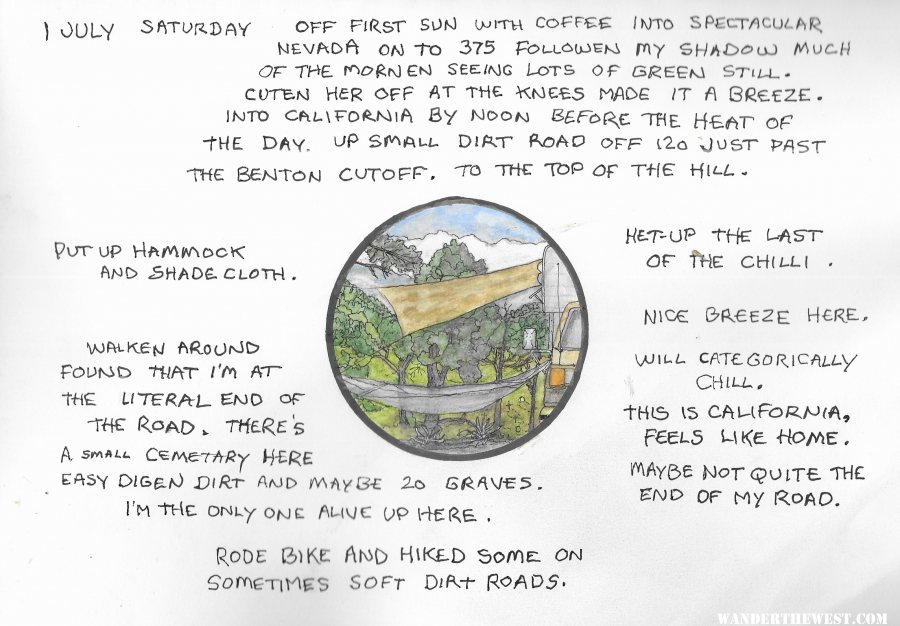 1 JULY SATURDAY OFF FIRST SUN WITH COFFEE INTO SPECTACULAR
NEVADA ON TO 375 FOLLOWEN MY SHADOW MUCH
OF THE MORNEN SEEING LOTS OF GREEN STILL.
CUTEN HER OFF AT THE KNEES MADE IT A BREEZE.
INTO CALIFORNIA BY NOON BEFORE THE HEAT OF
THE DAY. UP SMALL DIRT ROAD OFF 120 JUST PAST
THE BENTON CUTOFF. TO THE TOP OF THE HILL.
PUT UP HAMMOCK
AND SHADE CLOTH.
WALKEN AROUND
FOUND THAT I'M AT
THE LITERAL END OF
THE ROAD. THERE'S
A SMALL CEMETARY HERE
EASY DIGEN DIRT AND MAYBE 20 GRAVES.
I'M THE ONLY ONE ALIVE UP HERE.
RODE BIKE AND HIKED SOME ON
SOMETIMES SOFT DIRT ROADS.
HET-UP THE LAST
OF THE CHILLI.
NICE BREEZE HERE.
WILL CATEGORICALLY
CHILL.
THIS IS CALIFORNIA,
FEELS LIKE HOME.
MAYBE NOT QUITE THE
END OF MY ROAD.
WANDERTHEWEST.COM